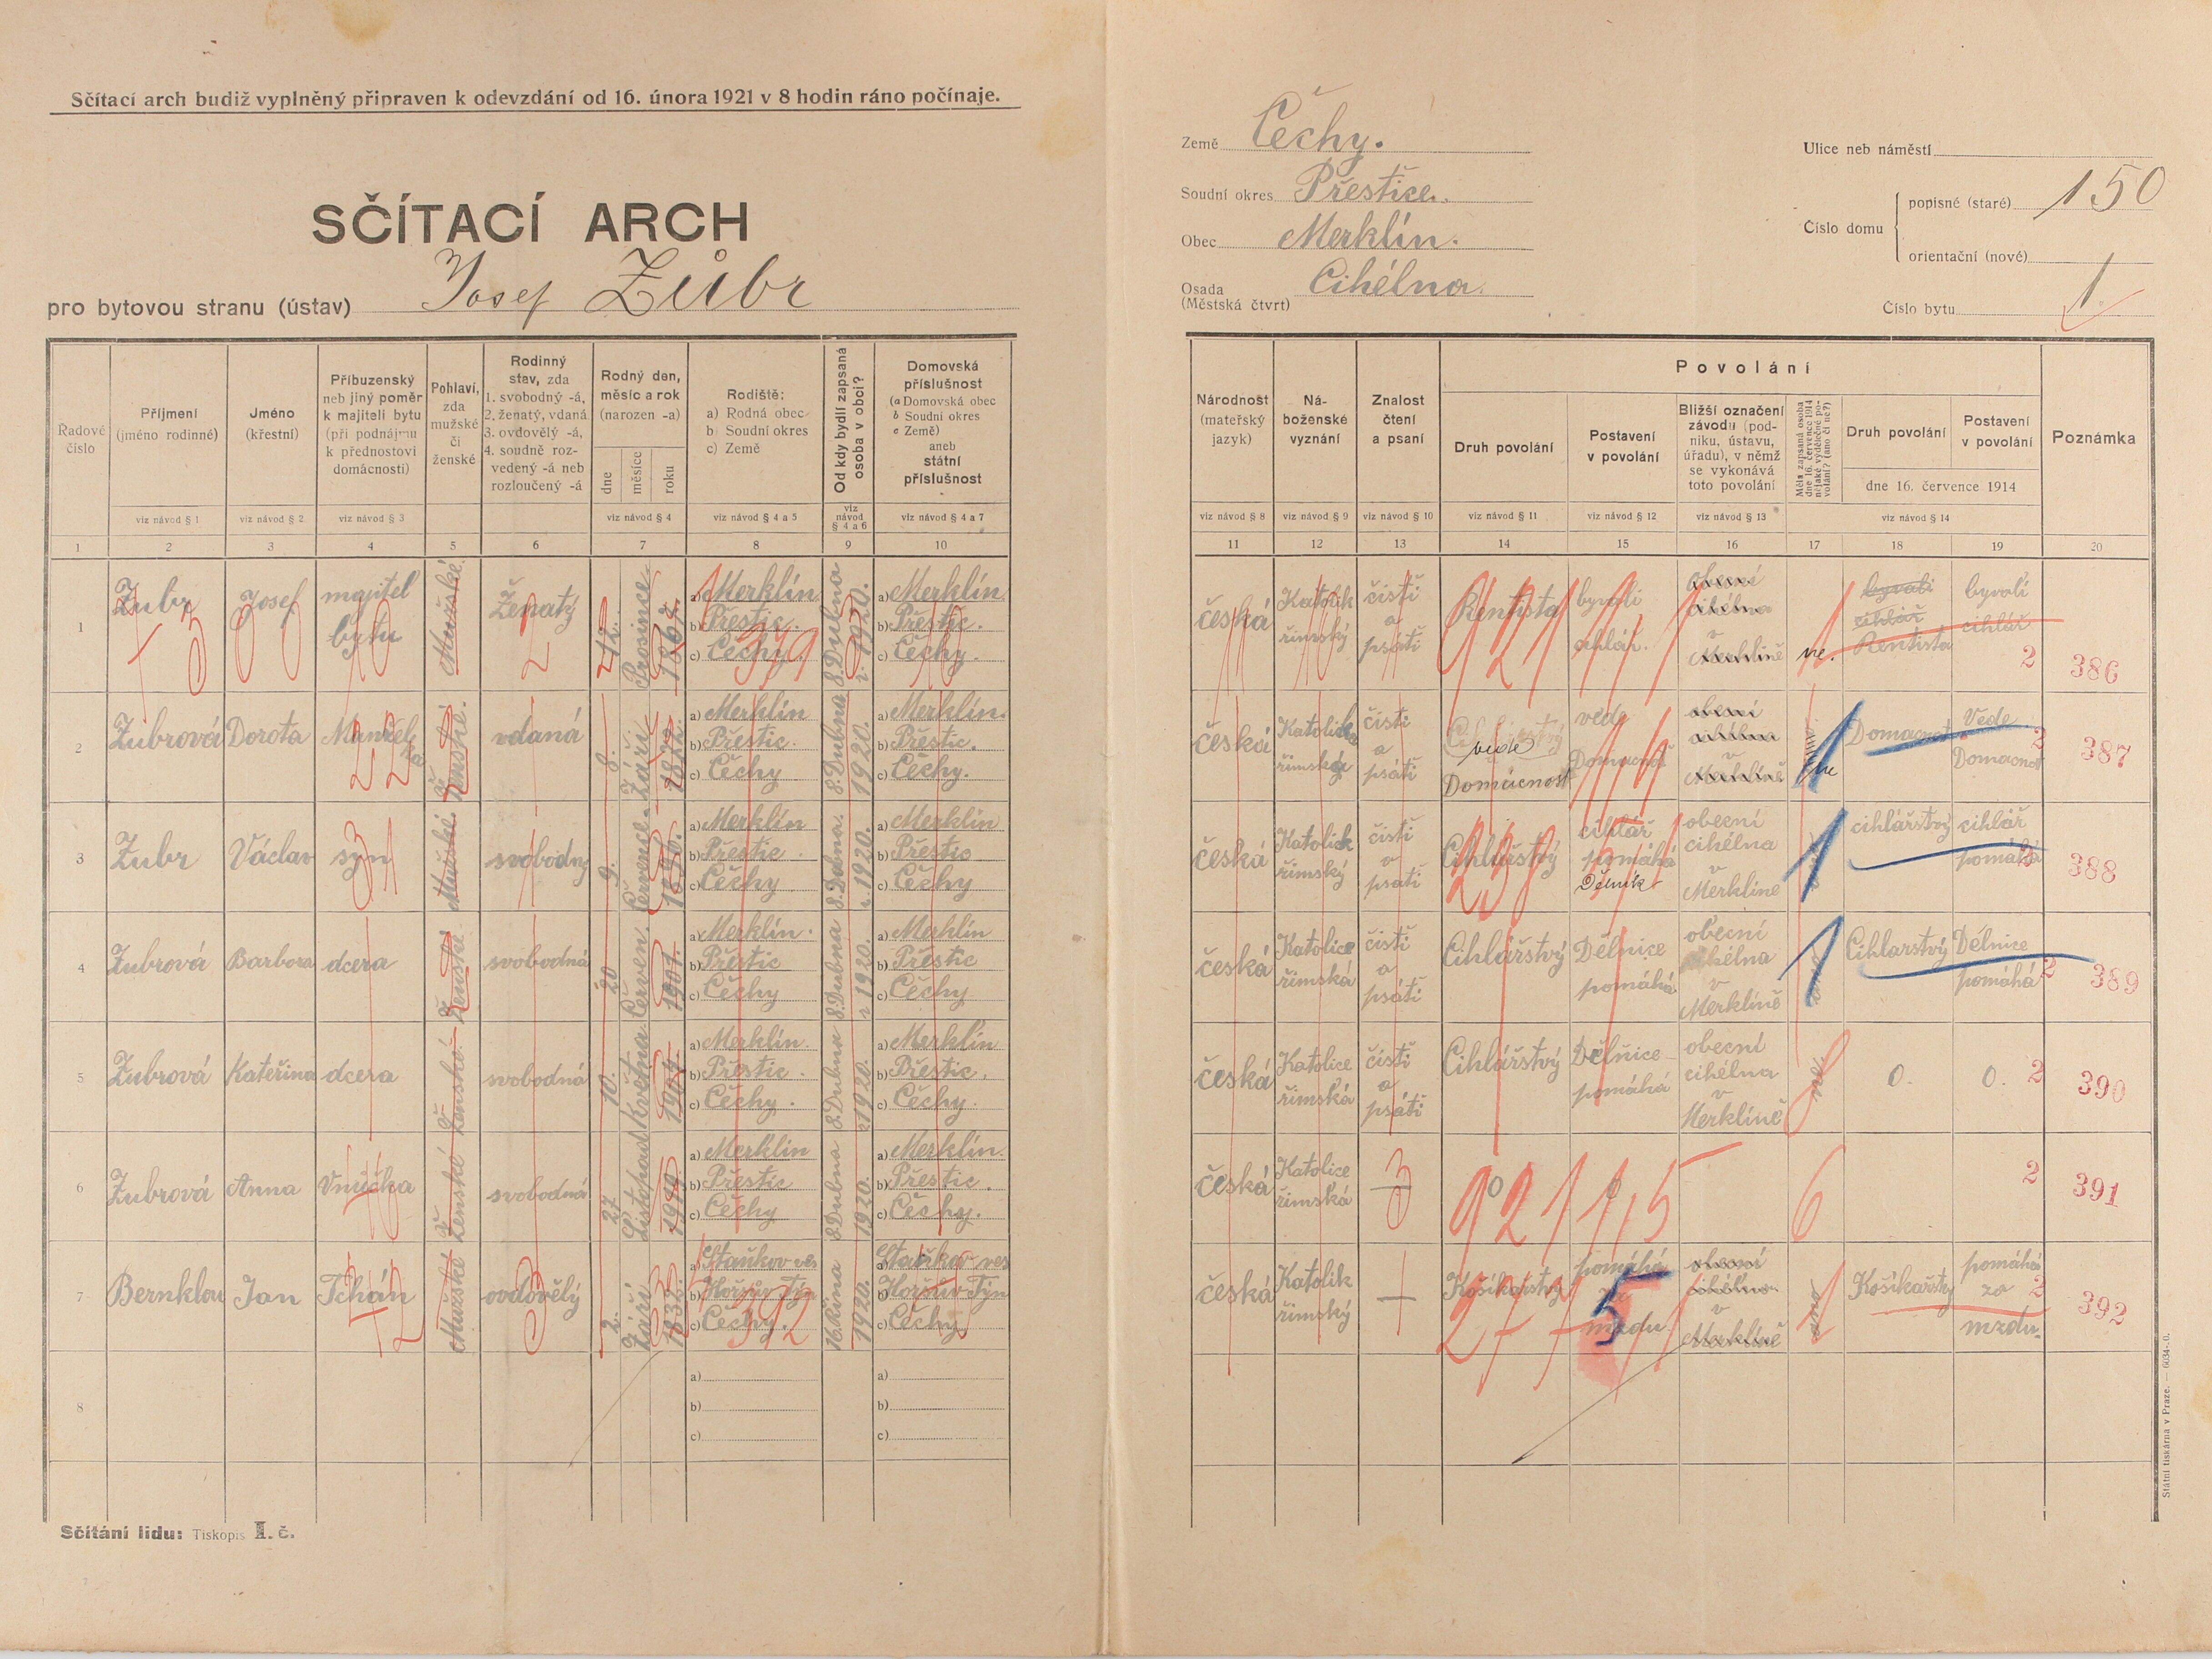 Sčítací arch budiž vyplněný připraven k odevzdání od 16. února 1921 v 8 hodin ráno počínaje.
SČÍTACÍ ARCH
pro bytovou stranu (ústav) Josef Zůbr
Země Čechy.
Soudní okres Přeštice.
Obec Merklín.
Osada (Městská čtvrt) Cihélna.
Ulice neb náměstí
Číslo domu
popisné (staré) 150
orientační (nové)
Číslo bytu 1.
Řadové číslo
Příjmení (jméno rodinné)
Jméno (křestní)
Příbuzenský neb jiný poměr k majiteli bytu (při podnájmu k přednostovi domácnosti)
Pohlaví, zda mužské či ženské
Rodinný stav, zda 1. svobodný -á, 2. ženatý, vdaná 3. ovdovělý -á, 4. soudně rozvedený -á neb rozloučený -á
Rodný den, měsíc a rok (narozen -a)
dne měsíce roku
Rodiště: a) Rodná obec b) Soudní okres c) Země
Od kdy bydlí zapsaná osoba v obci?
Domovská příslušnost (a Domovská obec b Soudní okres c Země) aneb státní příslušnost
Národnost (mateřský jazyk)
Náboženské vyznání
Znalost čtení a psaní
Povolání
Druh povolání
Postavení v povolání
Bližší označení závodu (podniku, ústavu, úřadu), v němž se vykonává toto povolání
Měla zapsaná osoba dne 16. července 1914 nějaké výdělečné povolání? (ano či ne?)
Druh povolání
Postavení v povolání
dne 16. července 1914
Poznámka
viz návod § 1 viz návod § 2 viz návod § 3 viz návod § 4 viz návod § 4 a 5 viz návod § 4 a 6 viz návod § 4 a 7
viz návod § 8 viz návod § 9 viz návod § 10 viz návod § 11 viz návod § 12 viz návod § 13 viz návod § 14
1 2 3 4 5 6 7 8 9 10
11 12 13 14 15 16 17 18 19 20
1 Zubr Josef majitel bytu Mužské. Ženatý 12. Prosince 1867. a) Merklín b) Přestic. c) Čechy. 8. Dubna 1920. a) Merklín b) Přestic. c) Čechy.
česká Katolik římský čísti a psáti Rentista byvalí cihlář. obecní cihélna v Merklíně ne. byvalí cihlář Rentista byvolí cihlář 2 386
2 Zubrová Dorota Manželka Ženské. vdaná 8. Září a) Merklín b) Přestic. c) Čechy 8. Dubna 1920. a) Merklín. b) Přestic. c) Čechy.
česká Katolička římská čísti a psáti vede Domácnost vede Domacnost obecní cihélna v Merklíně ne Domacnost Vede Domacnost 2 387
3 Zubr Václav syn Mužské. svobodný 9. Července 1896. a) Merklín b) Přestic. c) Čechy 8. Dubna 1920. a) Merklín b) Přestic c) Čechy
česká Katolick římský čisti a psati Cihlářstvý cihlář pomáhá Dělník obecní cihélna v Merklíne cihlářstvý cihlář pomáhá 2 388
4 Zubrová Barbora dcera Ženské svobodná 20 Červen. 1901. a) Merklín. b) Přestic c) Čechy 8. Dubna 1920. a) Merklín b) Přestic c) Čechy
česká Katolice římská čisti a psáti Cihlářstvý Dělnice pomáhá obecní cihélna v Merklíně Cihlarstvý Dělnice pomáhá 2 389
5 Zubrová Kateřina dcera Ženské. svobodná 10. Května a) Merklín. b) Přestic. c) Čechy. 8. Dubna 1920. a) Merklín b) Přestic. c) Čechy.
česká Katolice římská čisti a psáti Cihlářstvý Dělnice pomáhá obecní cihélna v Merklíně ne 0. 0. 2 390
6 Zubrová Anna Vnučka Ženské svobodná 27 Listopad a) Merklín b) Přestic c) Čechy 8. Dubna 1920. a) Merklín. b) Přestic. c) Čechy.
česká Katolice římská — 0 921 1,5 6 2 391
7 Bernklou Jan Tchán Mužské ovdovělý 2. Září 1832. a) Staňkov ves b) Horšův Týn c) Čechy. 16. Října 1920. a) Staňkov ves b) Horšův Týn c) Čechy
česká Katolik římský — Košíkařstvý pomáhá za mzdu 5 obecní cihélna v Merklíně ano Košíkařstvý pomáhá za mzdu. 2 392
8 a) b) c) a) b) c)
Sčítání lidu: Tiskopis I. č.
Státní tiskárna v Praze. — 6034-20.